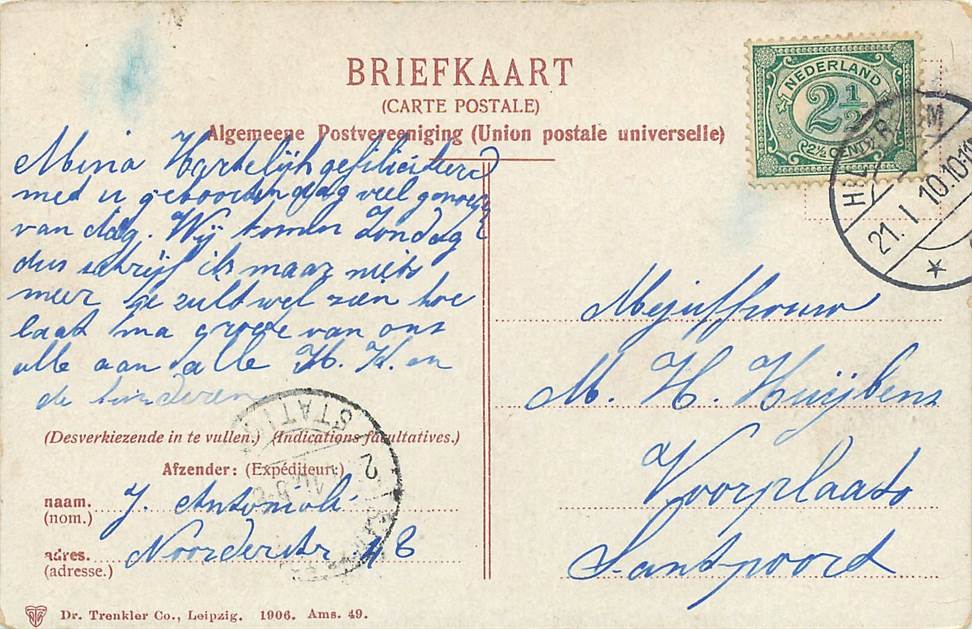 BRIEFKAART
(CARTE POSTALE)
Algemeene Postvereeniging (Union postale universelle)
NEDERLAND
2½
2½ CENT
21. 1 10.10-11
Mina Hartelijk gefiliciteerd
met u geboortendag veel genoegen
van dag. Wij komen Zondag
dus schrijf ik maar niets
meer je zult wel zien hoe
laat ma groete van ons
alle aan alle H. H. en
de kinderen
STATI
2
(Desverkiezende in te vullen.) (Indications facultatives.)
Afzender: (Expéditeur:)
naam. J. Antonioli
(nom.)
adres. Noorderstr 48
(adresse.)
Mejuffrouw
M. H. Huijbens
Voorplaats
Santpoord
Dr. Trenkler Co., Leipzig. 1906. Ams. 49.